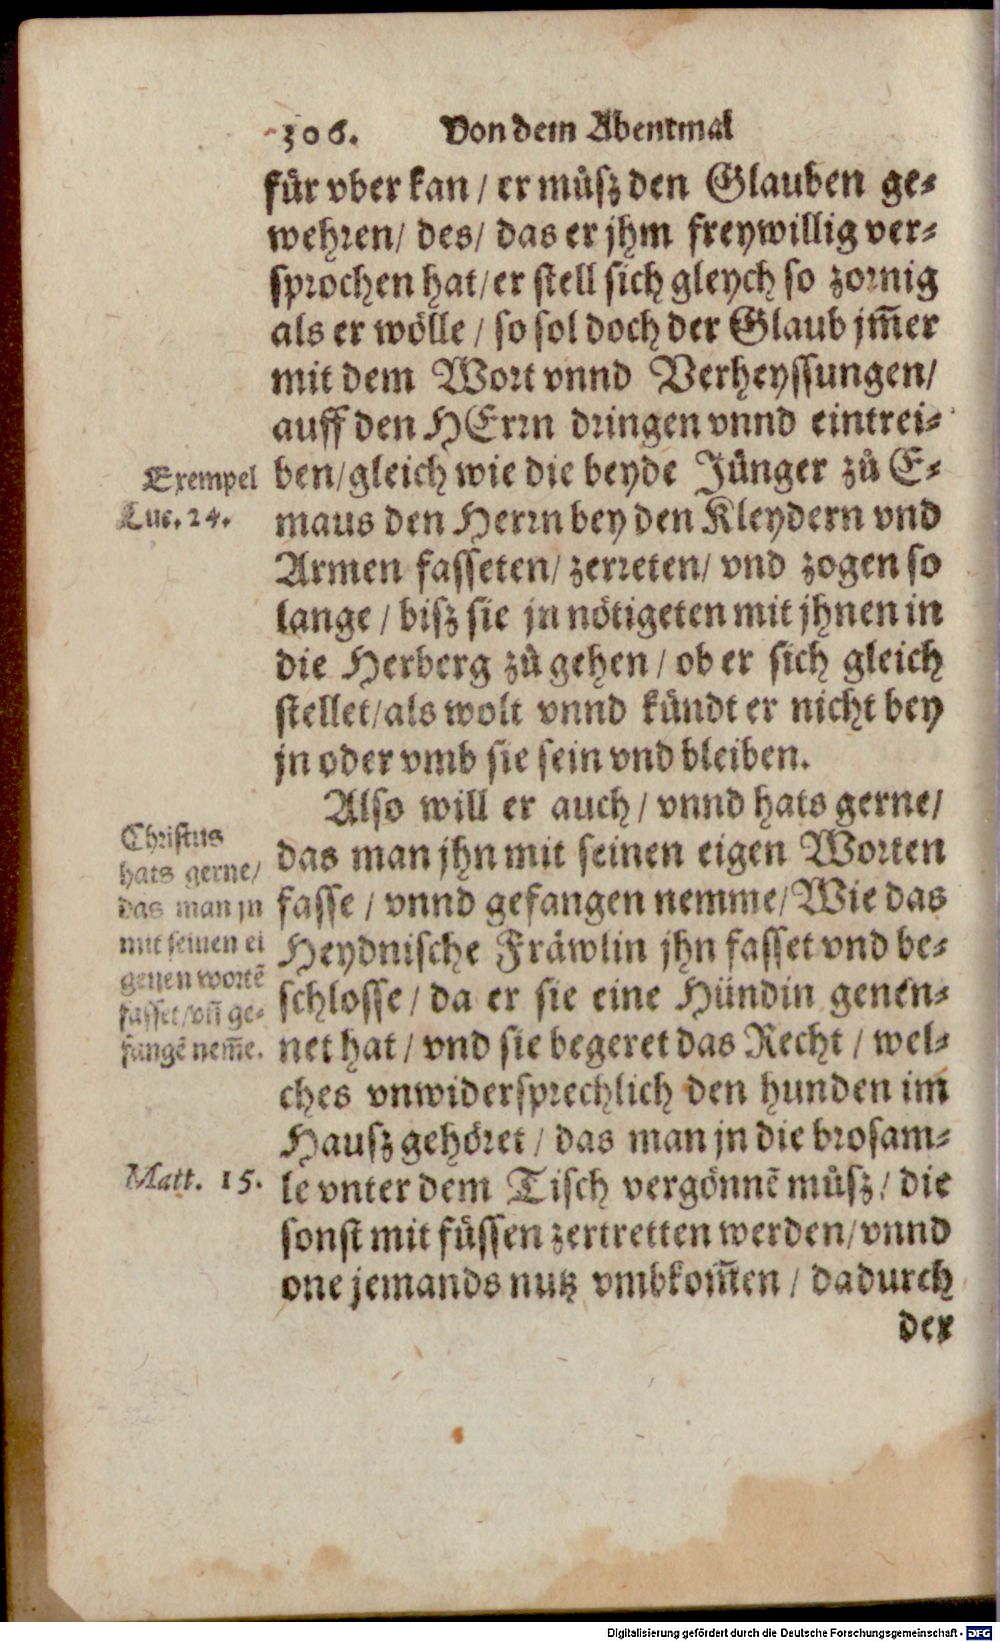 306. Von dem Abentmal
für vber kan / er můſz den Glauben ge⸗
wehren / des / das er jhm freywillig ver⸗
ſprochen hat / er ſtell ſich gleych ſo zornig
als er wölle / ſo ſol doch der Glaub jm̃er
mit dem Wort vnnd Verheyſſungen /
auff den HErrn dringen vnnd eintrei⸗
Exempel
Luc. 24.
ben / gleich wie die beyde Jünger zů E⸗
maus den Herrn bey den Kleydern vnd
Armen faſſeten / zerreten / vnd zogen ſo
lange / biſz ſie jn nötigeten mit jhnen in
die Herberg zů gehen / ob er ſich gleich
ſtellet / als wolt vnnd kündt er nicht bey
jn oder vmb ſie ſein vnd bleiben.
Alſo will er auch / vnnd hats gerne /
Chriſtus
hats gerne /
das man jn
mit ſeinen ei
genen wortẽ
faſſet / vñ ge⸗
fangẽ nem̃e.
das man jhn mit ſeinen eigen Worten
faſſe / vnnd gefangen nemme / Wie das
Heydniſche Fräwlin jhn faſſet vnd be⸗
ſchloſſe / da er ſie eine Hündin genen⸗
net hat / vnd ſie begeret das Recht / wel⸗
ches vnwiderſprechlich den hunden im
Hauſz gehöret / das man jn die broſam⸗
Matt. 15.
le vnter dem Tiſch vergönnẽ můſz / die
ſonſt mit füſſen zertretten werden / vnnd
one jemands nutz vmbkom̃en / dadurch
der
Digitalisierung gefördert durch die Deutsche Forschungsgemeinschaft - DFG